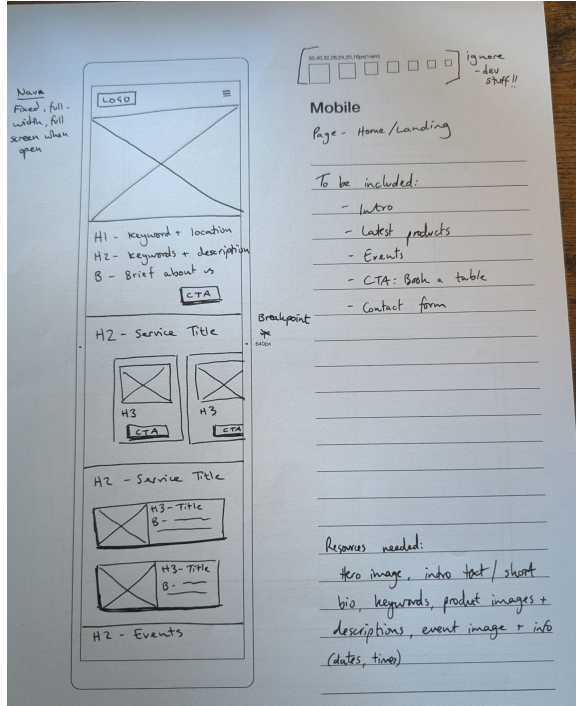 Nav
Fixed, full-
width, full
screen when
open
LOGO
H1 - Keyword + location
H2 - Keywords + description
B - Brief about us
CTA
H2 - Service Title
H3
CTA
H3
CTA
H2 - Service Title
H3-Title
B -
H3-Title
B -
H2 - Events
Breakpoint
640px
50,40,32,28,24,20,16px(1rem)
ignore
- dev
stuff!!
Mobile
Page - Home/Landing
To be included:
- Intro
- Latest products
- Events
- CTA: Book a table
- Contact form
Resources needed:
Hero image, intro text / short
bio, keywords, product images +
descriptions, event image + info
(dates, times)